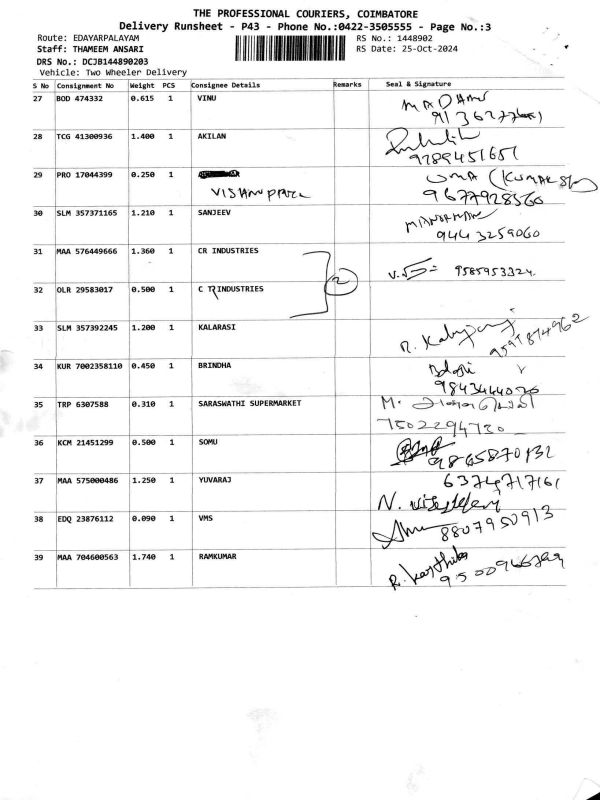 THE PROFESSIONAL COURIERS, COIMBATORE
Delivery Runsheet - P43 - Phone No.:0422-3505555 - Page No.:3
Route: EDAYARPALAYAM RS No.: 1448902
Staff: THAMEEM ANSARI RS Date: 25-Oct-2024
DRS No.: DCJB144890203
Vehicle: Two Wheeler Delivery
S No Consignment No Weight PCS Consignee Details Remarks Seal & Signature
27 BOD 474332 0.615 1 VINU
28 TCG 41300936 1.400 1 AKILAN
9789451651
29 PRO 17044399 0.250 1 UMA (KUMAR
9677928560
30 SLM 357371165 1.210 1 SANJEEV
9443259060
31 MAA 576449666 1.360 1 CR INDUSTRIES
2 9585953324
32 OLR 29583017 0.500 1 C R INDUSTRIES
33 SLM 357392245 1.200 1 KALARASI
9597874962
34 KUR 7002358110 0.450 1 BRINDHA
35 TRP 6307588 0.310 1 SARASWATHI SUPERMARKET M.
7502294730
36 KCM 21451299 0.500 1 SOMU
9865870132
37 MAA 575000486 1.250 1 YUVARAJ 6374717161
N.
38 EDQ 23876112 0.090 1 VMS 8807950913
39 MAA 704600563 1.740 1 RAMKUMAR
R. Karthika